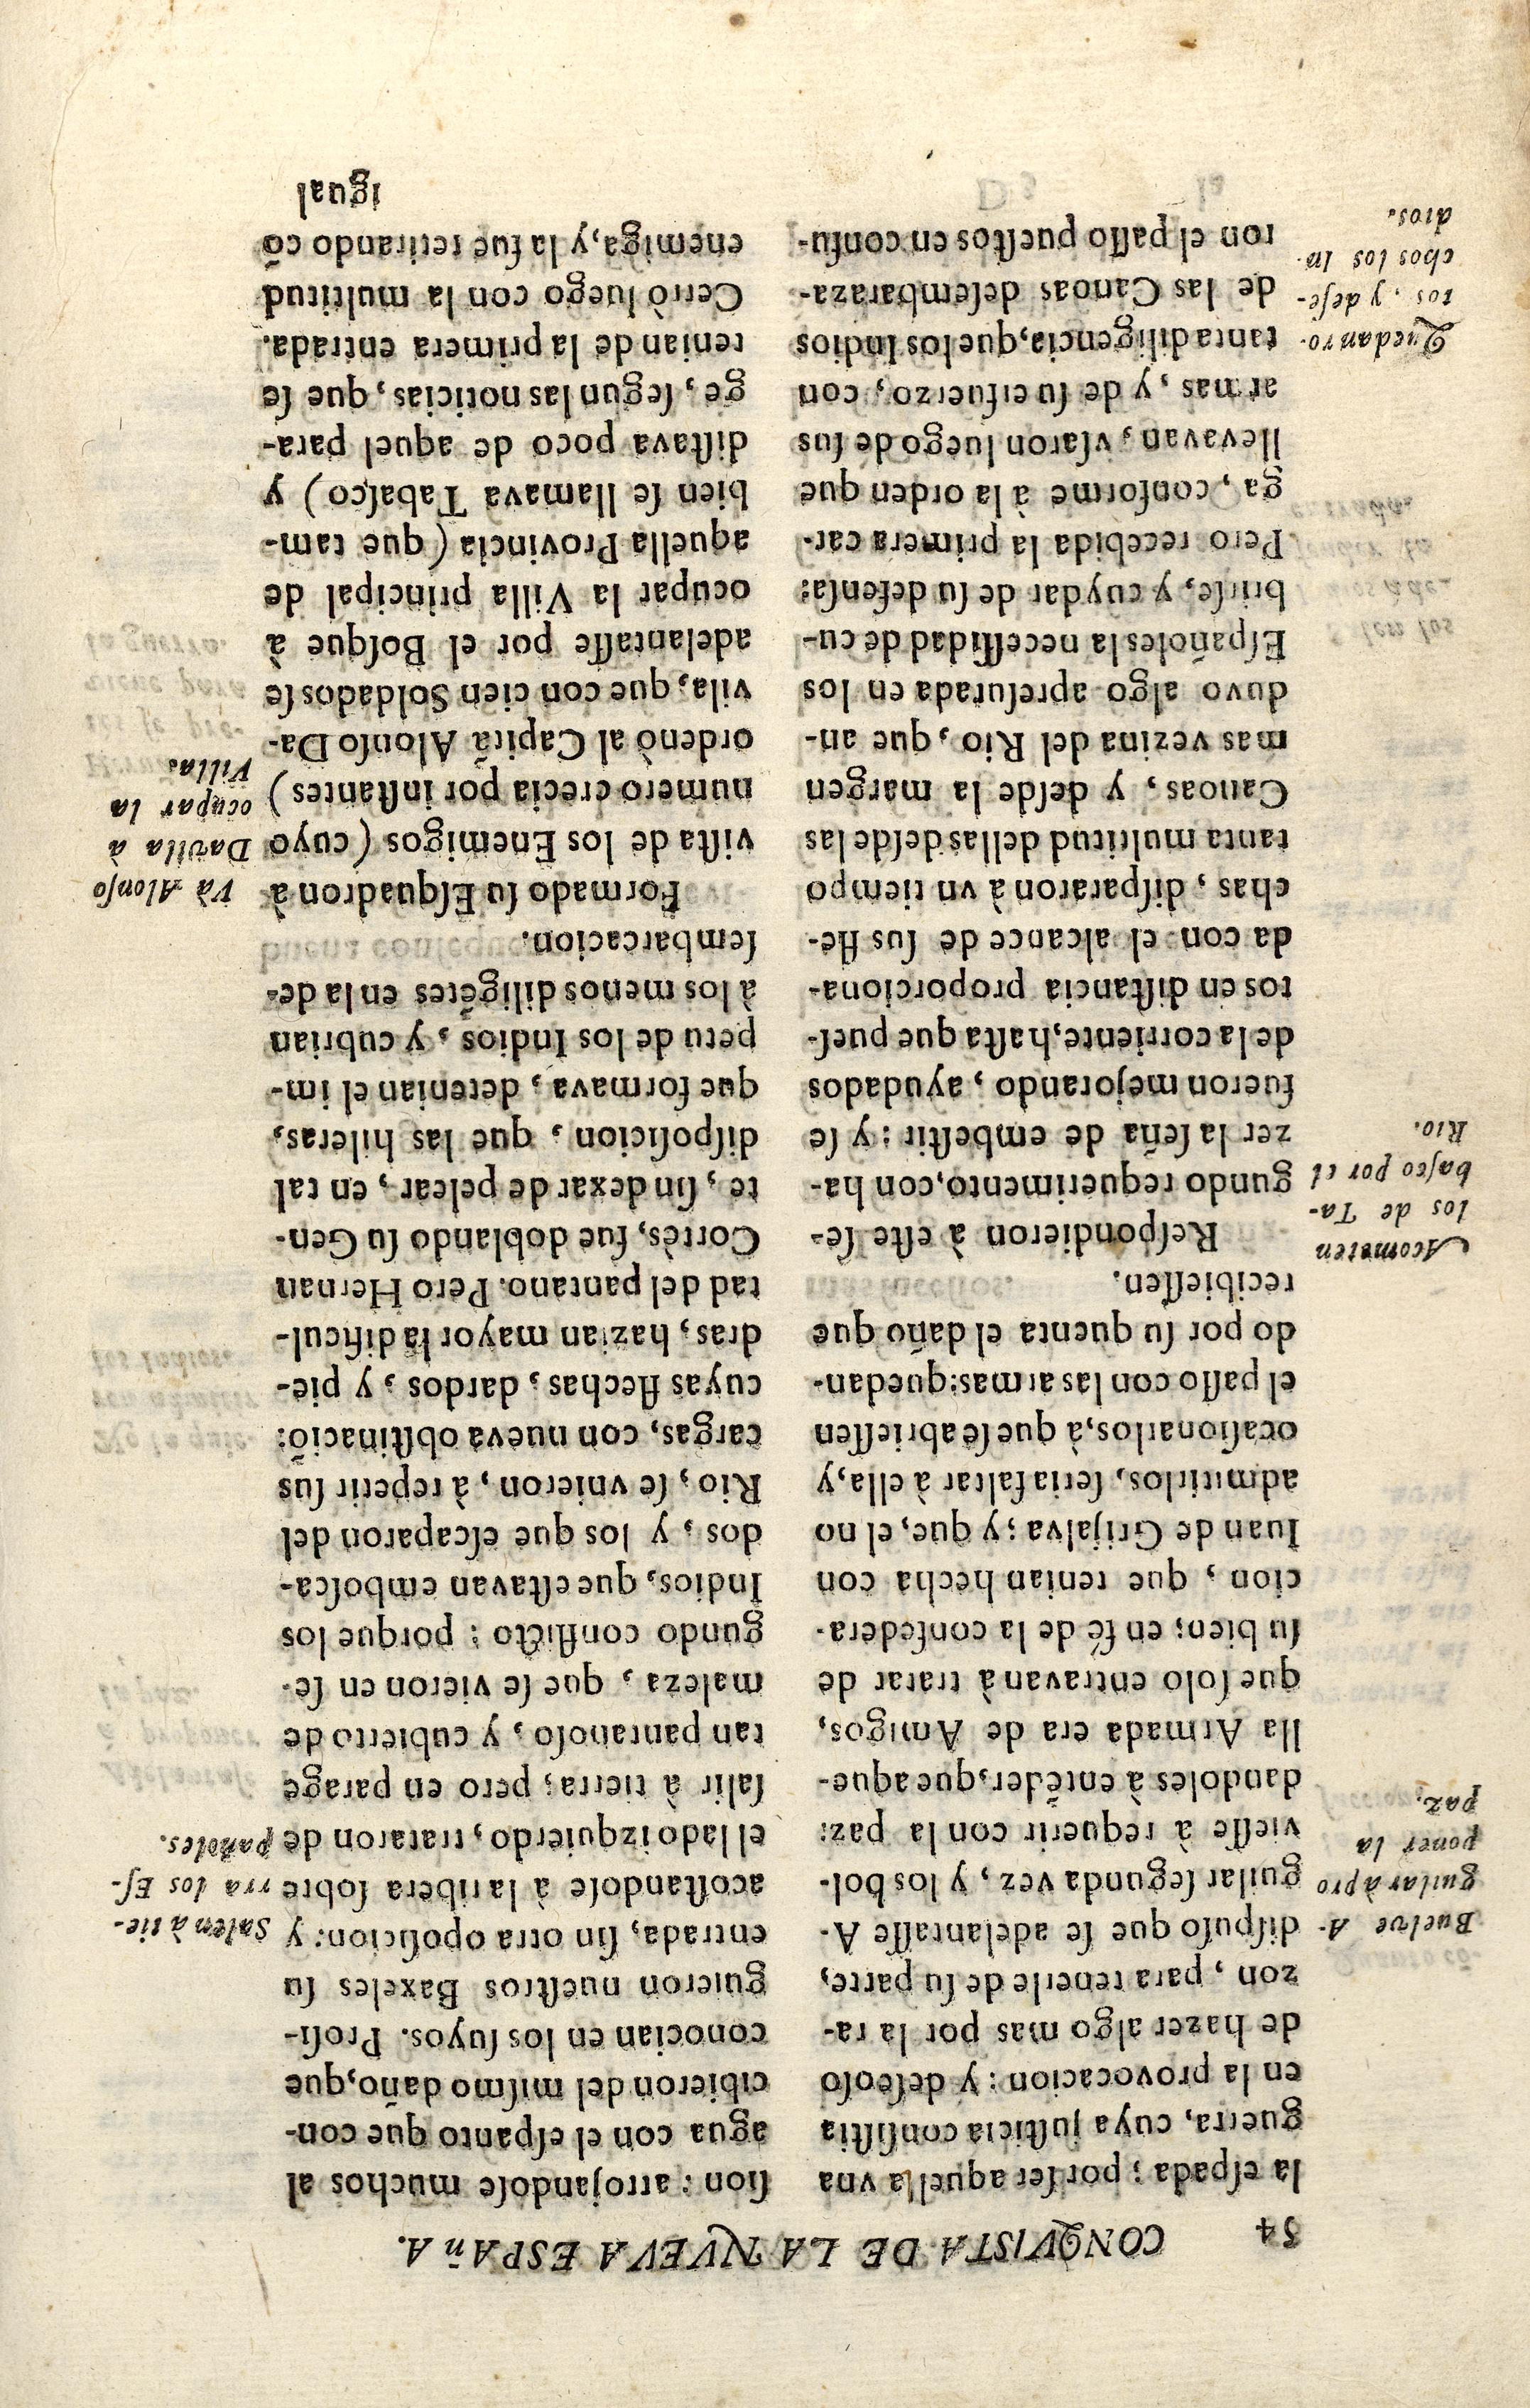 54 CONQVISTA DE LA NVEVA ESPAñA.
la eſpada; por ſer aquella vna
guerra, cuya juſticia conſiſtia
en la provocacion: y deſeoſo
de hazer algo mas por la ra-
zon, para tenerle de ſu parte,
diſpuſo que ſe adelantaſſe A-
guilar ſegunda vez, y los bol-
vieſſe à requerir con la paz:
dandoles à entẽder, que aque-
lla Armada era de Amigos,
que ſolo entravan à tratar de
ſu bien; en fè de la confedera-
cion, que tenian hecha con
Iuan de Grijalva; y que, el no
admitirlos, ſeria faltar à ella, y
ocaſionarlos, à que ſe abrieſſen
el paſſo con las armas: quedan-
do por ſu quenta el daño que
recibieſſen.
Reſpondieron à eſte ſe-
gundo requerimento, con ha-
zer la ſeña de embeſtir: y ſe
fueron mejorando, ayudados
de la corriente, haſta que pueſ-
tos en diſtancia proporciona-
da con el alcance de ſus fle-
chas, diſpararon à vn tiempo
tanta multitud dellas deſde las
Canoas, y deſde la margen
mas vezina del Rio, que an-
duvo algo apreſurada en los
Eſpañoles la neceſſidad de cu-
brirſe, y cuydar de ſu defenſa:
Pero recebida la primera car-
ga, conforme à la orden que
llevavan, vſaron luego de ſus
armas, y de ſu esfuerzo, con
tanta diligencia, que los Indios
de las Canoas deſembaraza-
ron el paſſo pueſtos en confu-
Buelve A-
guilar à pro
poner la
paz.
Acometen
los de Ta-
baſco por el
Rio.
Quedan ro-
tos, y deſe-
chos los In-
dios.
ſion: arrojandoſe muchos al
agua con el eſpanto que con-
cibieron del miſmo daño, que
conocian en los ſuyos. Proſi-
guieron nueſtros Baxeles ſu
entrada, ſin otra opoſicion: y
acoſtandoſe à la ribera ſobre
el lado izquierdo, trataron de
ſalir à tierra; pero en parage
tan pantanoſo, y cubierto de
maleza, que ſe vieron en ſe-
gundo conflicto; porque los
Indios, que eſtavan emboſca-
dos, y los que eſcaparon del
Rio, ſe vnieron, à repetir ſus
cargas, con nueva obſtinaciõ:
cuyas flechas, dardos, y pie-
dras, hazian mayor la dificul-
tad del pantano. Pero Hernan
Cortès, fue doblando ſu Gen-
te, ſin dexar de pelear, en tal
diſpoſicion, que las hileras,
que formava, detenian el im-
petu de los Indios, y cubrian
à los menos diligẽtes en la de-
ſembarcacion.
Formado ſu Eſquadron à
viſta de los Enemigos (cuyo
numero crecia por inſtantes)
ordenò al Capitã Alonſo Da-
vila, que con cien Soldados ſe
adelantaſſe por el Boſque à
ocupar la Villa principal de
aquella Provincia (que tam-
bien ſe llamava Tabaſco) y
diſtava poco de aquel para-
ge, ſegun las noticias, que ſe
tenian de la primera entrada.
Cerrò luego con la multitud
enemiga, y la fue retirando cõ
igual
Salen à tie-
rra los Eſ-
pañoles.
Và Alonſo
Davila à
ocupar la
Villa.